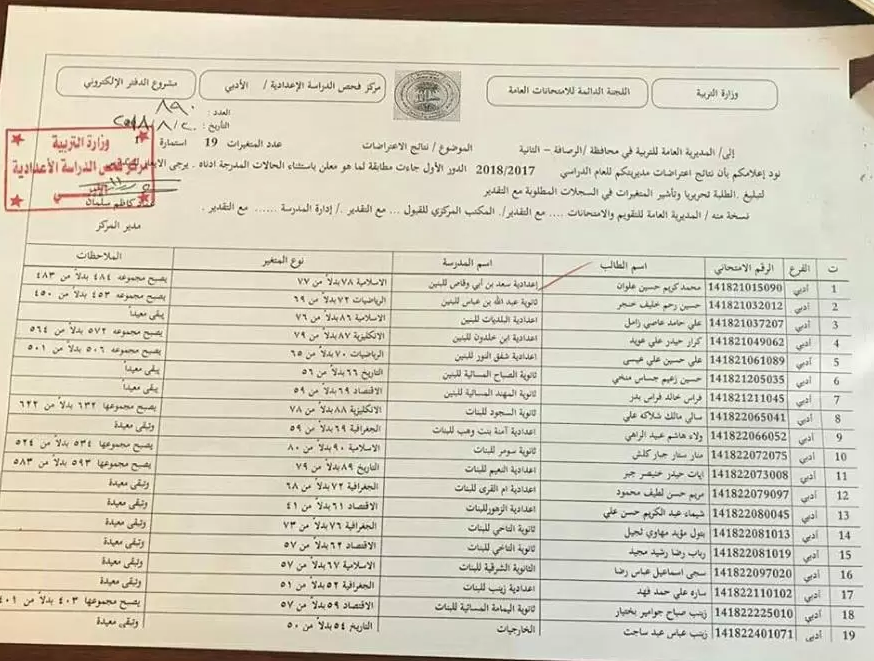 وزارة التربية
اللجنة الدائمة للامتحانات العامة
مركز فحص الدراسة الإعدادية / الأدبي
مشروع الدفتر الإلكتروني
العدد : ٨٩٠
التاريخ :
وزارة التربية
مركز فحص الدراسة الأعدادية
إلى/ المديرية العامة للتربية في محافظة /الرصافة – الثانية الموضوع / نتائج الاعتراضات عدد المتغيرات 19 استمارة
نود إعلامكم بأن نتائج اعتراضات مديريتكم للعام الدراسي 2018/2017 الدور الأول جاءت مطابقة لما هو معلن باستثناء الحالات المدرجة ادناه . يرجى
لتبليغ .الطلبة تحريريا وتأشير المتغيرات في السجلات المطلوبة مع التقدير
نسخة منه / المديرية العامة للتقويم والامتحانات .... مع التقدير/. المكتب المركزي للقبول ... مع التقدير ./ إدارة المدرسة ...... مع التقدير .
كاظم سلمان
مدير المركز
ت الفرع الرقم الامتحاني اسم الطالب اسم المدرسة نوع المتغير الملاحظات
1 أدبي 141821015090 محمد كريم حسين علوان إعدادية سعد بن أبي وقاص للبنين الاسلامية ٧٨ بدلاً من ٧٧ يصبح مجموعه ٤٨٤ بدلاً من ٤٨٣
2 أدبي 141821032012 حسين رحم خليف خنجر ثانوية عبد الله بن عباس للبنين الرياضيات ٧٢ بدلاً من ٦٩ يصبح مجموعه ٤٥٣ بدلاً من ٤٥٠
3 أدبي 141821037207 علي حامد عاصي زامل إعدادية البلديات للبنين الاسلامية ٨٦ بدلاً من ٧٦ يبقى معيداً
4 أدبي 141821049062 كرار حيدر علي عويد اعدادية ابن خلدون للبنين الانكليزية ٨٧ بدلاً من ٧٩ يصبح مجموعه ٥٧٢ بدلاً من ٥٦٤
5 أدبي 141821061089 علي حسين علي عيسى إعدادية شفق النور للبنين الرياضيات ٧٠ بدلاً من ٦٥ يصبح مجموعه ٥٠٦ بدلاً من ٥٠١
6 أدبي 141821205035 حسين زغيم جساس منخي ثانوية الصباح المسائية للبنين التاريخ ٦٦ بدلاً من ٥٦ يبقى معيداً
7 أدبي 141821211045 فراس خالد فراس بدر ثانوية المهند المسائية للبنين الاقتصاد ٦٩ بدلاً من ٥٩ يبقى معيداً
8 أدبي 141822065041 سالي مالك شلاكه علي ثانوية السجود للبنات الانكليزية ٨٨ بدلاً من ٧٨ يصبح مجموعها ٦٣٢ بدلاً من ٦٢٢
9 أدبي 141822066052 ولاء هاشم عبيد الراهي إعدادية آمنة بنت وهب للبنات الجغرافية ٦٩ بدلاً من ٥٩ وتبقى معيدة
10 أدبي 141822072075 منار ستار جبار كلش ثانوية سومر للبنات الاسلامية ٩٠ بدلاً من ٨٠ يصبح مجموعها ٥٣٤ بدلاً من ٥٢٤
11 أدبي 141822073008 ايات حيدر خنيصر جبر اعدادية النعيم للبنات التاريخ ٨٩ بدلاً من ٧٩ يصبح مجموعها ٥٩٣ بدلاً من ٥٨٣
12 أدبي 141822079097 مريم حسن لطيف محمود إعدادية ام القرى للبنات الجغرافية ٧٢ بدلاً من ٦٨ وتبقى معيدة
13 أدبي 141822080045 شيماء عبد الكريم حسن علي إعدادية الزهور للبنات الاقتصاد ٦١ بدلاً من ٤١ وتبقى معيدة
14 أدبي 141822081013 بتول مؤيد مهاوي ثجيل ثانوية التاخي للبنات الجغرافية ٧٦ بدلاً من ٧٣ وتبقى معيدة
15 أدبي 141822081019 رباب رضا رشيد مجيد ثانوية التاخي للبنات الاقتصاد ٦٢ بدلاً من ٥٧ وتبقى معيدة
16 أدبي 141822097020 سجى اسماعيل عباس رضا الثانوية الشرقية للبنات الاسلامية ٦٧ بدلاً من ٥٧ وتبقى معيدة
17 أدبي 141822110102 ساره علي حمد فهد إعدادية زينب للبنات الجغرافية ٥٢ بدلاً من ٥١ وتبقى معيدة
18 أدبي 141822225010 زينب صباح جوامير بختيار ثانوية اليمامة المسائية للبنات الاقتصاد ٥٩ بدلاً من ٥٧ يصبح مجموعها ٤٠٣ بدلاً من ٤٠١
19 أدبي 141822401071 زينب عباس عبد ساجت الخارجيات التاريخ ٥٤ بدلاً من ٥٠ وتبقى معيدة